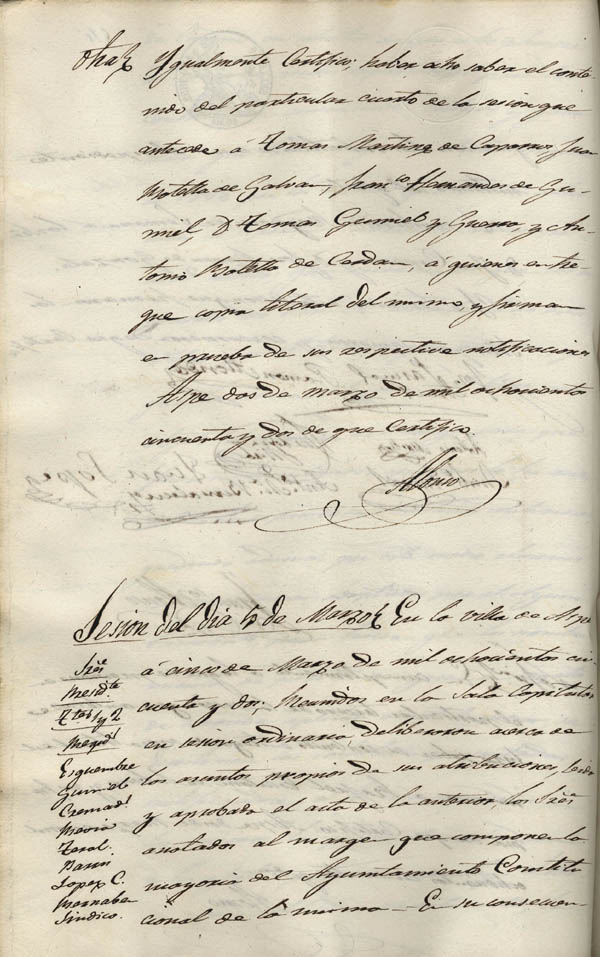 otra Ygualmente Certifico; haber echo saber el conte-
nido del particular cuarto de la sesion que
antecede á Tomas Martinez de Caparros Juan
Botella de Galvan, Franco Hernandes de Gu-
miel, D. Tomas Gumiel y Guerra, y An-
tonio Botella de Cerdan, á quienes entre-
gue copia literal del mismo, y firman
en prueba de sus respective notificaciones
Aspe dos de marzo de mil ochocientos
cincuenta y dos de que Certifico
Alonso
Sesion del dia 5 de Marzo En la villa de Aspe
á cinco de Marzo de mil ochocientos cin-
cuenta y dos; Reunidos en la Sala Capitular
en sesion ordinaria, deliberaron acerca de
los asuntos propios de sus atribuciones, leida
y aprobada el acta de la anterior, los Sres
anotados al margen que componen la
mayoria del Ayuntamiento Constitu-
cional de la misma - En su consecuen-
Sres
Preside
1 y 2
Regid
Esquembre
Gumiel
Cremad
Lopez C.
Sindico.
Juan Lopez